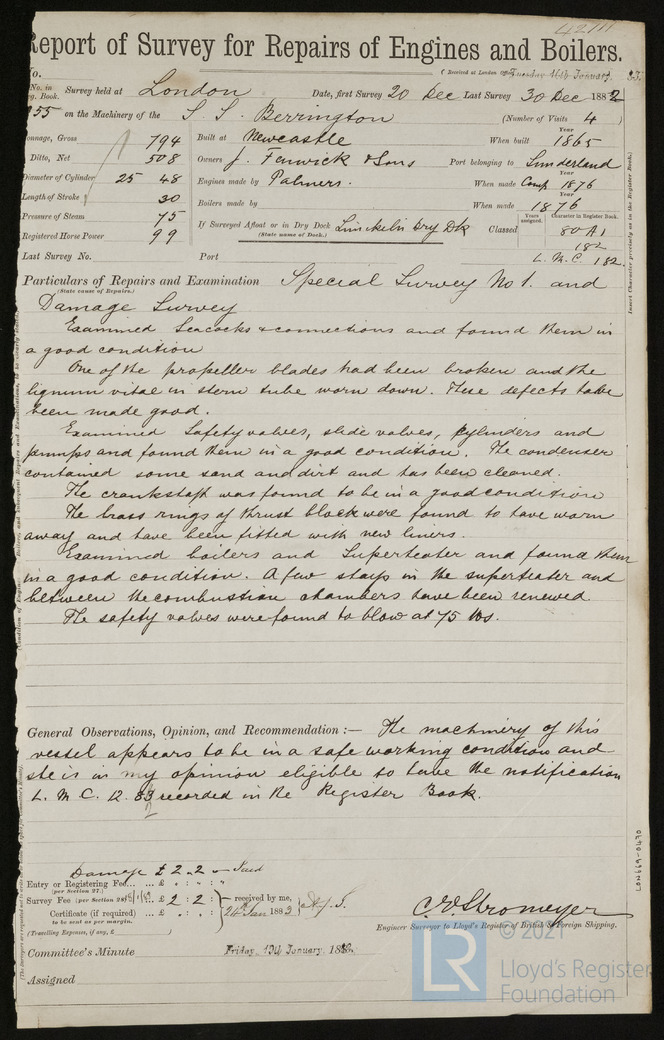 42111
Report of Survey for Repairs of Engines and Boilers.
No. (Received at London Office Tuesday 16th January 83
No. in Reg. Book. Survey held at London Date, first Survey 20 Dec Last Survey 30 Dec 1882
955 on the Machinery of the S. S. Berrington (Number of Visits 4 )
Tonnage, Gross 794 Built at Newcastle When built Year 1865
Ditto, Net 508 Owners J. Fenwick & Sons Port belonging to Sunderland
Diameter of Cylinder 25 48 Engines made by Palmers. When made Comp Year 1876
Length of Stroke 30 Boilers made by When made Year 1876
Pressure of Steam 75 If Surveyed Afloat or in Dry Dock Limekiln Dry Dk Classed Years assigned. Character in Register Book. 80 A1
Registered Horse Power 99 (State name of Dock.) 1 82
Last Survey No. Port L. M. C. 1 82.
Insert Character precisely as in the Register Book.
Particulars of Repairs and Examination Special Survey No 1. and
(State cause of Repairs.)
Damage Survey
Examined Seacocks & connections and found them in
a good condition
One of the propeller blades had been broken and the
lignum vitae in stern tube worn down. These defects have
been made good.
Examined Safety valves, slide valves, cylinders and
pumps and found them in a good condition. The condenser
contained some sand and dirt and has been cleaned.
The crankshaft was found to be in a good condition
The brass rings of thrust block were found to have worn
away and have been fitted with new liners.
Examined boilers and Superheater and found them
in a good condition. A few stays in the superheater and
between the combustion chambers have been renewed.
The safety valves were found to blow at 75 lbs.
General Observations, Opinion, and Recommendation :— The machinery of this
vessel appears to be in a safe working condition and
she is in my opinion eligible to have the notification
L. M. C. 12. 82 recorded in the Register Book.
LON669-0470
Damage £ 2 . 2 - Paid
Entry or Registering Fee... ... £ : : :
(per Section 27.)
Survey Fee (per Section 28) ... £ 2 : 2 : received by me,
Certificate (if required) ... £ : : 24 Jan 1883
to be sent as per margin.
(Travelling Expenses, if any, £ )
C. E. Stromeyer
Engineer Surveyor to Lloyd's Register of British & Foreign Shipping.
Committee's Minute Friday, 19th January, 1883.
Assigned
LR
© 2021
Lloyd's Register
Foundation